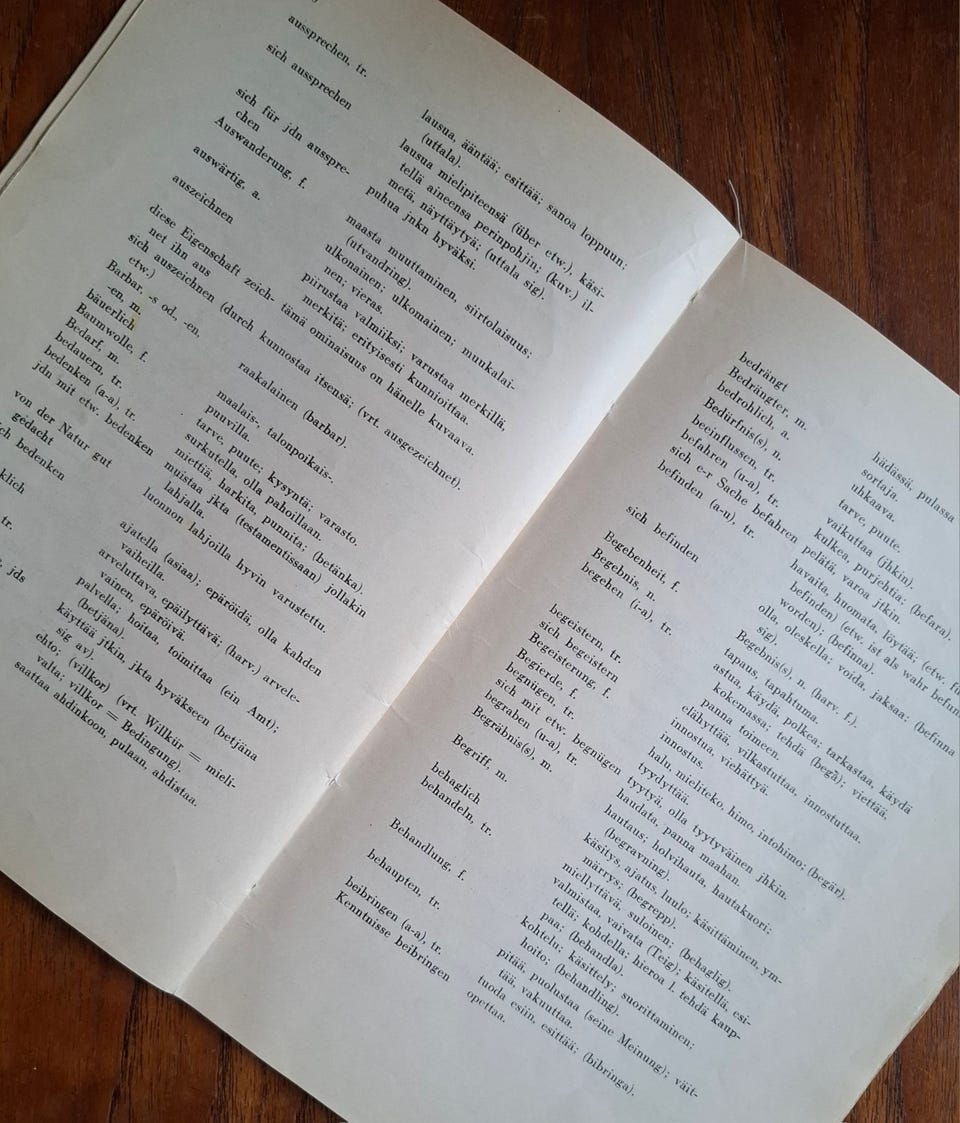 aussprechen, tr.
lausua, ääntää; esittää; sanoa loppuun;
(uttala).
sich aussprechen
lausua mielipiteensä (über etw.), käsi-
tellä aineensa perinpohjin; (kuv.) il-
metä, näyttäytyä; (uttala sig).
sich für jdn ausspre-
chen
puhua jnkn hyväksi.
Auswanderung, f.
maasta muuttaminen, siirtolaisuus;
(utvandring).
auswärtig, a.
ulkonainen; ulkomainen; muukalai-
nen; vieras.
auszeichnen
piirustaa valmiiksi; varustaa merkillä,
merkitä; erityisesti kunnioittaa.
diese Eigenschaft zeich-
net ihn aus
tämä ominaisuus on hänelle kuvaava.
sich auszeichnen (durch
etw.)
kunnostaa itsensä; (vrt. ausgezeichnet).
Barbar, -s od., -en,
-en, m.
raakalainen (barbar).
bäuerlich
maalais-, talonpoikais-.
Baumwolle, f.
puuvilla.
Bedarf, m.
tarve, puute; kysyntä; varasto.
bedauern, tr.
surkutella, olla pahoillaan.
bedenken (a-a), tr.
miettiä, harkita, punnita; (betänka).
jdn mit etw. bedenken
muistaa jkta (testamentissaan) jollakin
lahjalla.
von der Natur gut
gedacht
luonnon lahjoilla hyvin varustettu.
bedenken
ajatella (asiaa); epäröidä, olla kahden
vaiheilla.
klich
arveluttava, epäilyttävä; (harv.) arvele-
vainen, epäröivä.
tr.
palvella; hoitaa, toimittaa (ein Amt);
(betjäna).
jds
käyttää jtkin, jkta hyväkseen (betjäna
sig av).
ehto; (villkor) (vrt. Willkür = mieli-
valta; villkor = Bedingung).
saattaa ahdinkoon, pulaan, ahdistaa.
bedrängt
hädässä, pulassa
Bedrängter, m.
sortaja.
bedrohlich, a.
uhkaava.
Bedürfnis(s), n.
tarve, puute.
beeinflussen, tr.
vaikuttaa (jhkin).
befahren (u-a), tr.
kulkea, purjehtia; (befara).
sich e-r Sache befahren
pelätä, varoa jtkin.
befinden (a-u), tr.
havaita, huomata, löytää; (etw. fü
befinden) (etw. ist als wahr befun
worden); (befinna).
sich befinden
olla, oleskella; voida, jaksaa; (befinna
sig).
Begebenheit, f.
Begebnis(s), n. (harv. f.).
Begebnis, n.
tapaus, tapahtuma.
begehen (i-a), tr.
astua, käydä, polkea; tarkastaa, käydä
kokemassa; tehdä (begå); viettää,
panna toimeen.
begeistern, tr.
elähyttää, vilkastuttaa, innostuttaa.
sich begeistern
innostua, viehättyä.
Begeisterung, f.
innostus.
Begierde, f.
halu, mieliteko, himo, intohimo; (begär).
begnügen, tr.
tyydyttää.
sich mit etw. begnügen
tyytyä, olla tyytyväinen jhkin.
begraben (u-a), tr.
haudata, panna maahan.
Begräbnis(s), m.
hautaus; holvihauta, hautakuori;
(begravning).
Begriff, m.
käsitys, ajatus, luulo; käsittäminen, ym-
märrys; (begrepp).
behaglich
miellyttävä, suloinen; (behaglig).
behandeln, tr.
valmistaa, vaivata (Teig); käsitellä, esi-
tellä; kohdella; hieroa l. tehdä kaup-
paa; (behandla).
Behandlung, f.
kohtelu; käsittely; suorittaminen;
hoito; (behandling).
behaupten, tr.
pitää, puolustaa (seine Meinung); väit-
tää, vakuuttaa.
beibringen (a-a), tr.
tuoda esiin, esittää; (bibringa).
Kenntnisse beibringen
opettaa.